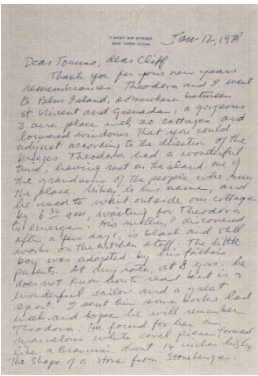 NEW YORK 10023
Jan 12, 1978
Dear Joanna, dear Cliff
Thank you for your new years
remembrances. Theodora and I went
to Palm Island, somewhere between
St Vincent and Grenada, a gorgeous
3 acre place with 20 cottages and
louvered windows that you could
adjust according to the direction of the
breezes. Theodora had a wonderful
time, having met on the island one of
the grandsons of the people who run
the place. is his name, and
he used to wait outside our cottage
by 6:30 am, waiting for Theodora
to emerge. His mother, I discovered
after a few days, is black and still
works in the kitchen staff. The little
boy was adopted by his father's
parents. At any rate, at 8 yrs. he
does not know how to read but is a
wonderful sailor and a great
sport. I sent him some books last
week and hope he will remember
Theodora. He found for her a
marvelous white coral piece formed
like a Brancusi, about 14 inches high,
the shape of a stone from Stonehenge.